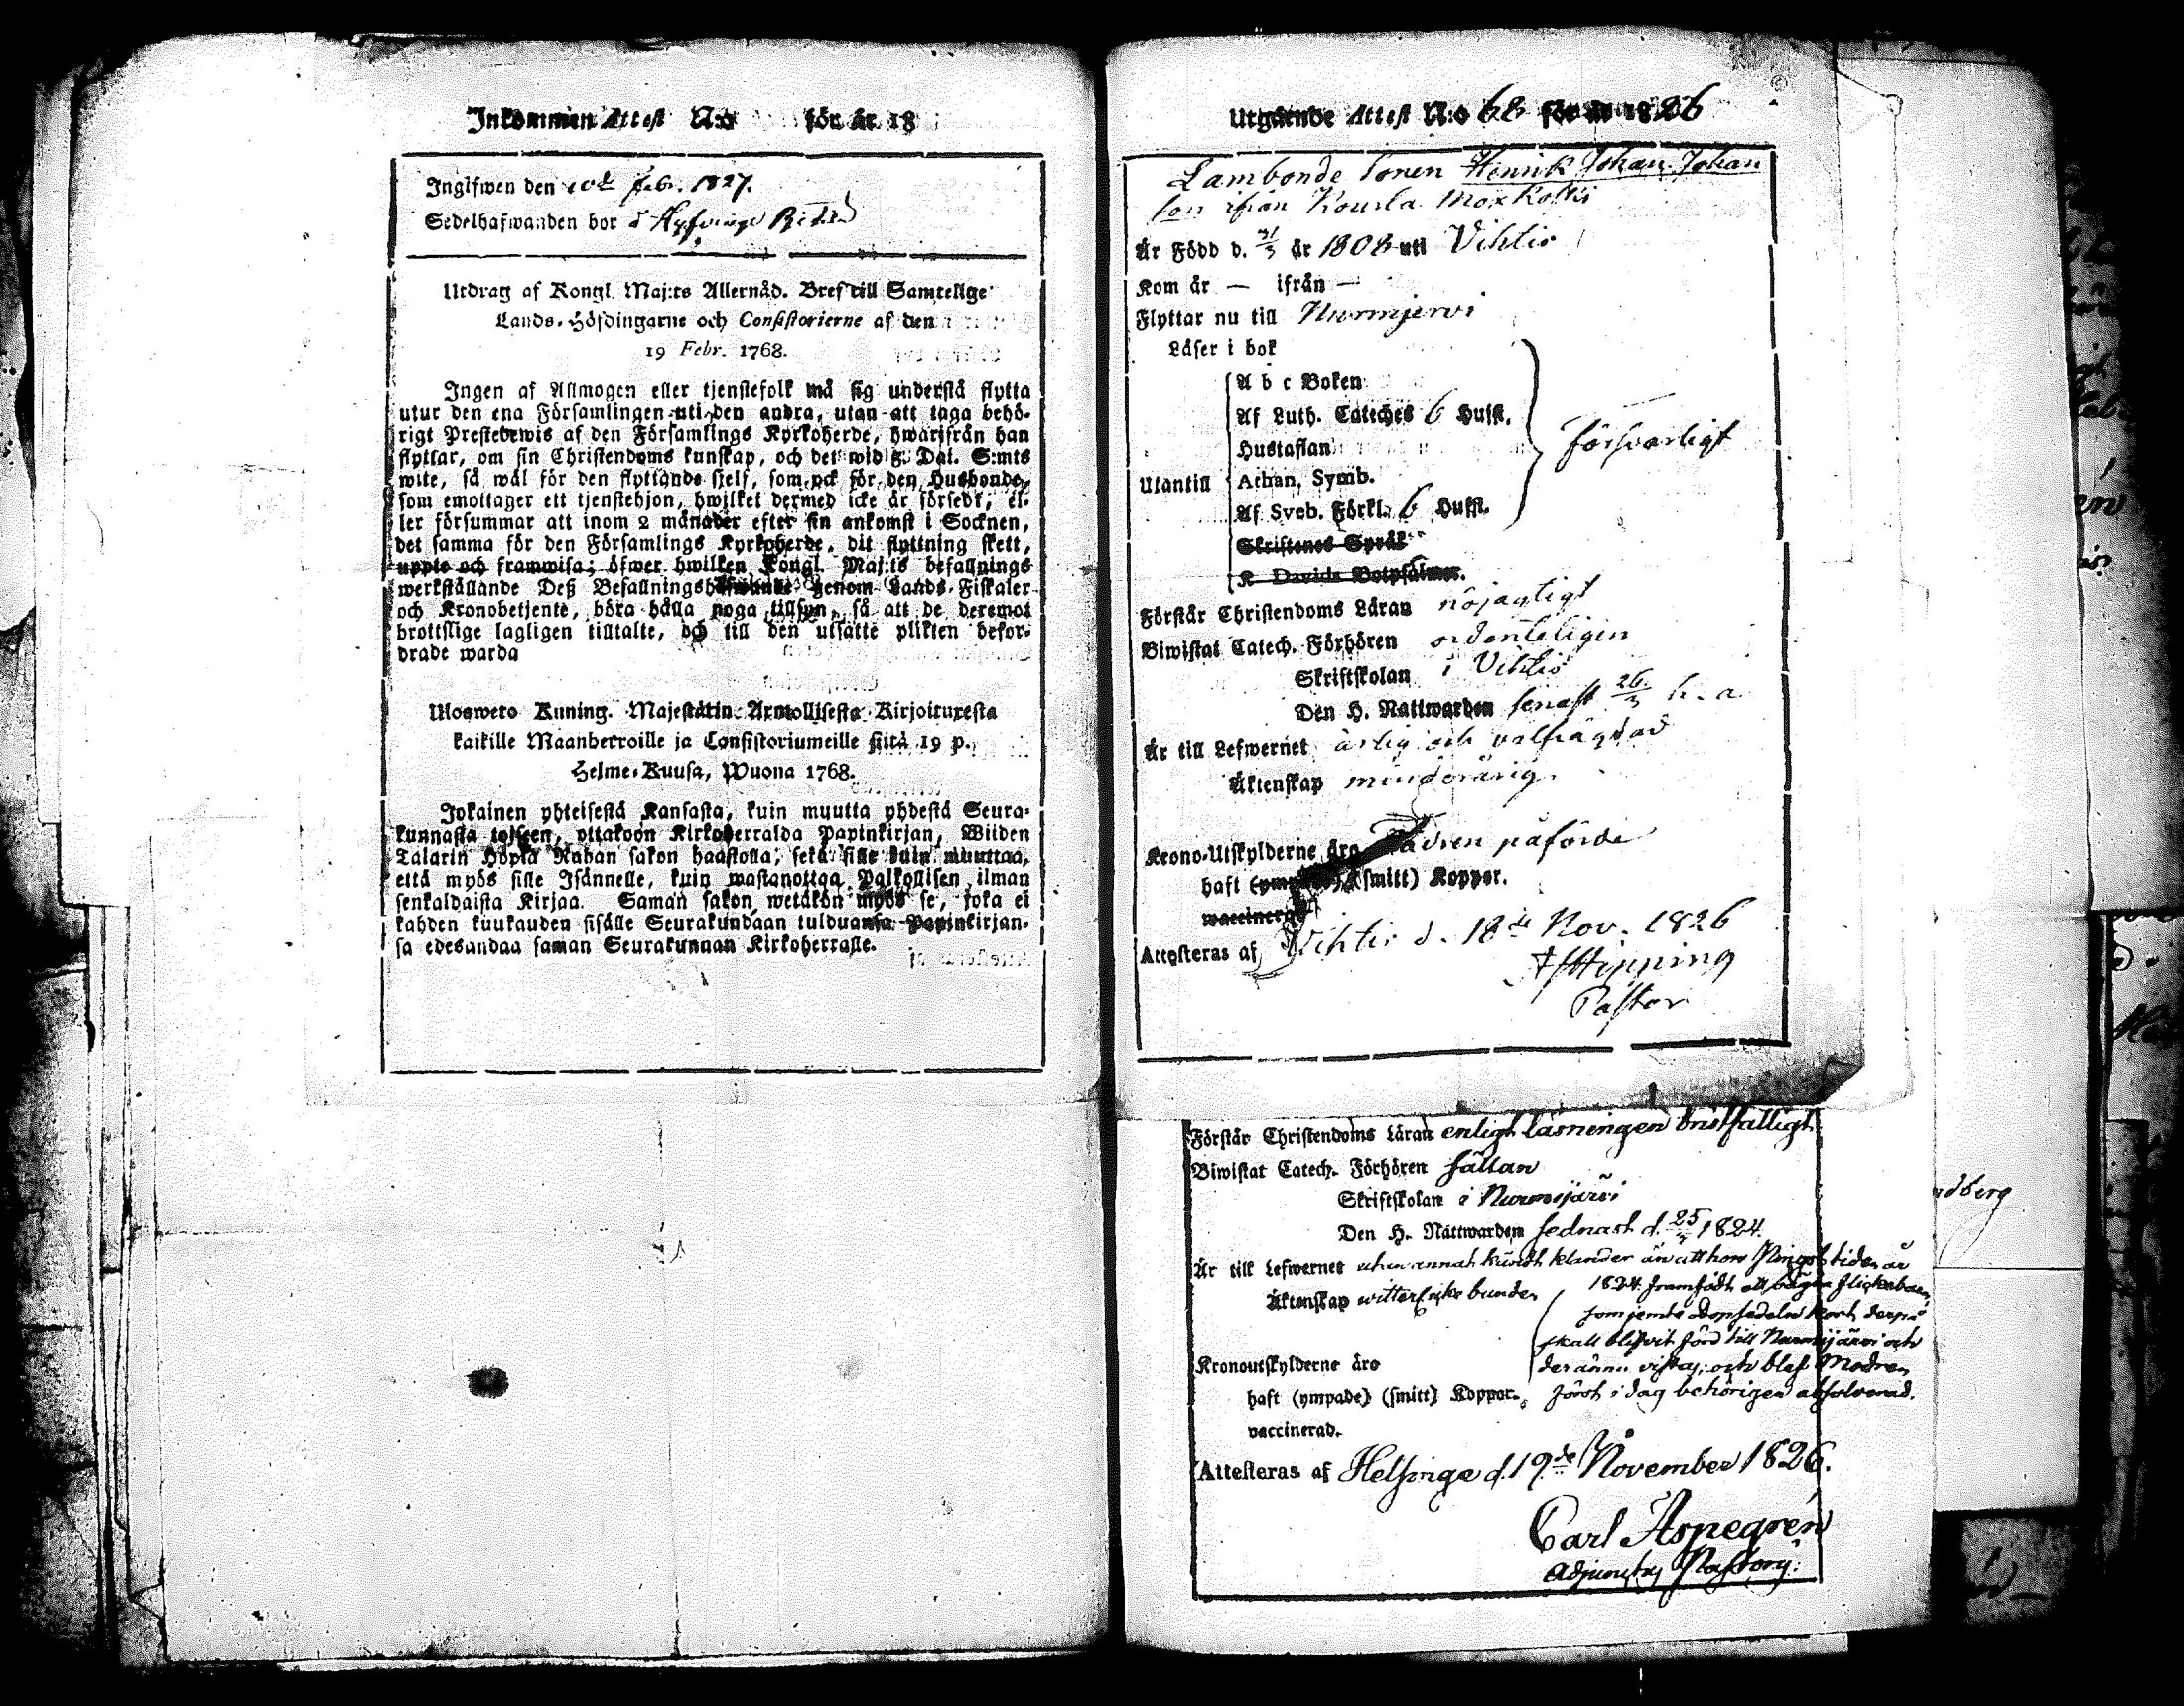 Inkommen Attest N:o för år 18
Ingifwen den 10de febr. 1827.
Sedelhafwanden bor i
Utdrag af Kongl. Maj:ts Allernåd. Bref till Samtelige
Lands-Höfdingarne och Consistorierne af den
19 Febr. 1768.
Ingen af Allmogen eller tjenstefolk må sig understå flytta
utur den ena Församlingen uti den andra, utan att taga behö-
rigt Prestebewis af den Församlings Kyrkoherde, hwarifrån han
flyttar, om sin Christendoms kunskap, och det wid 5 Dal. S:mts
wite, så wäl för den flyttande sjelf, som ock för den Husbonde,
som emottager ett tjenstehjon, hwilket dermed icke är försedt, el-
ler försummar att inom 2 månader efter sin ankomst i Socknen,
det samma för den Församlings Kyrkoherde, dit flyttning skett,
uppte och framwisa; öfwer hwilken Kongl. Maj:ts befallnings
werkställande Deß Befallningshafwande genom Lands-Fiskaler
och Kronobetjente, böra hålla noga tillsyn, så att de deremot
brottslige lagligen tilltalte, och till den utsatte plikten befor-
drade warda
Ulosweto Kuning. Majestätin Armollisesta Kirjoituxesta
kaikille Maanherroille ja Consistoriumeille siitä 19 p.
Helme-Kuusa, Wuona 1768.
Jokainen yhteisestä Kansasta, kuin muutta yhdestä Seura-
kunnasta toiseen, ottakoon Kirkoherralda Papinkirjan, Wiiden
Talarin Hopia Rahan sakon haastolla, sekä sille kuin muuttaa,
että myös sille Isännelle, kuin wastanottaa Palkollisen ilman
senkaldaista Kirjaa. Saman sakon wetäkön myös se, joka ei
kahden kuukauden sisälle Seurakundaan tulduansa Papinkirjan-
sa edesandaa saman Seurakunnan Kirkoherralle.
Utgående Attest N:o 68 för år 1826
Lambonde Sonen Henrik Johan Johan
son ifrån Kourla
Är Född d. 21/3 år 1808 uti Vihtis
Kom år — ifrån —
Flyttar nu till Nurmijervi
Läser i bok
A b c Boken
Af Luth. Cateches 6 Hufst.
Hustaflan
försvarligt
Utantill
Athan. Symb.
Af Sveb. Förkl. 6 Hufst.
Skriftenes Språk
K Davids Botpsalmer.
Förstår Christendoms Läran nöjagtigt
Biwistat Catech. Förhören ordenteligen
Skriftskolan i Vihtis
Den H. Nattwarden senast 26/3 h. a
Är till Lefwernet ärlig och välfrägdad
Äktenskap minderårig.
Krono-Utskylderne äro Fadren påförde
haft (ympade) (smitt) Koppor.
vaccinerad
Attesteras af Vihtis d. 18de Nov. 1826
Hipping
Pastor
Förstår Christendoms Läran enligt läsningen bristfälligt
Biwistat Catech. Förhören sällan
Skriftskolan i Nurmijärvi
Den H. Nattwarden sednast d. 25/4 1824.
Är till Lefwernet utan annat kändt klander än att hon Pingst tiden år
Äktenskap witterligt obunden
1824 framfödt ett oägta flickebarn,
som jemte Dopsedeln kort derpå
skall blifvit förd till Nurmijärvi och
Kronoutskylderne äro
der ännu vistas; och blef Modren
haft (ympade) (smitt) Koppor.
först i dag behörigen absolverad.
vaccinerad.
Attesteras af Helsinge d. 19de November 1826.
Carl Aspegrén
Adjunctus Pastoris.
dberg